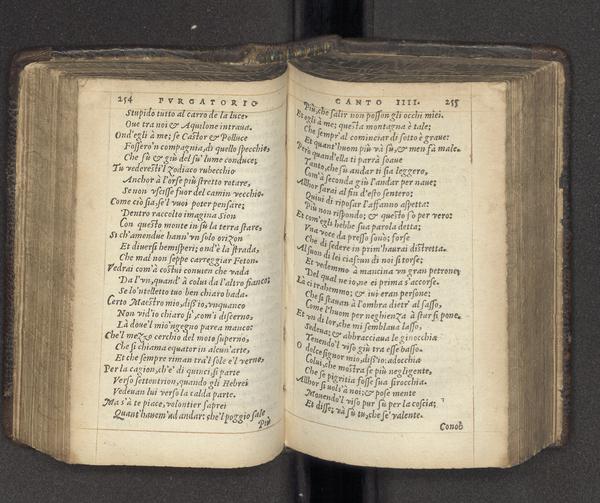 254 PVRGATORIO
Stupido tutto al carro de la luce,
Oue tra noi & Aquilone intraua.
Ond'egli à me; se Castor & Polluce
Fossero'n compagnia, di quello specchio,
Che sù & giù del su' lume conduce;
Tu vederesti'l zodiaco rubecchio
Anchor à l'orse più stretto rotare,
Se non vscisse fuor del camin vecchio.
Come ciò sia, se'l vuoi poter pensare;
Dentro raccolto imagina Sion
Con questo monte in sù la terra stare,
Si ch'amendue hann'vn solo orizon
Et diuersi hemisperi; ond'è la strada,
Che mal non seppe carreggiar Feton.
Vedrai com'à costui conuien che vada
Da l'vn, quand'à colui da l'altro fianco;
Se lo'ntelletto tuo ben chiaro bada.
Certo Maestro mio, diss'io, vnquanco
Non vid'io chiaro sì, com'i discerno,
Là doue'l mio'ngegno parea manco:
Che'l mezzo cerchio del moto superno,
Che si chiama equator in alcun'arte,
Et che sempre riman tra'l sole e'l verno,
Per la cagion, ch'è di quinci, si parte
Verso settentrion, quando gli Hebrei
Vedeuan lui verso la calda parte.
Ma s'à te piace, volontier saprei
Quant'hauem'ad andar: che'l poggio sale
Più
CANTO IIII. 255
Più, che salir non posson gli occhi miei.
Et egli à me; questa montagna è tale;
Che sempr'al cominciar di sotto è graue:
Et quant'huom più và sù, & men fà male.
Però quand'ella ti parrà soaue
Tanto, che su andar ti sia leggero,
Com'à seconda giù l'andar per naue;
Allhor sarai al fin d'esto sentero;
Quiui di riposar l'affanno aspetta:
Più non rispondo; & questo sò per vero:
Et com'egli hebbe sua parola detta;
Vna voce da presso sonò: forse
Che di sedere in prim'haurai distretta.
Al suon di lei ciascun di noi si torse;
Et vedemmo à mancina vn gran petrone,
Del qual ne io, ne ei prima s'accorse.
Là ci trahemmo; & iui eran persone;
Che si stauan à l'ombra dietr' al sasso,
Come l'huom per neghienza à star si pone.
Et vn di lor, che mi semblaua lasso,
Sedeua; & abbracciaua le ginocchia
Tenendo'l viso giù tra esse basso.
O dolce signor mio, diss'io: adocchia
Colui, che mostra se più negligente,
Che se pigritia fosse sua sirocchia.
Allhor si uols'à noi; & pose mente
Mouendo'l viso pur sù per la coscia;
Et disse; và sù tu, che se' valente.
Conob